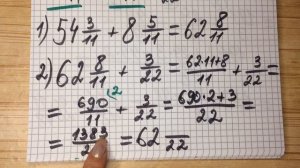 1) 54 3/11 + 8 5/11 = 62 8/11
2) 62 8/11 + 3/22 = 62·11+8/11 + 3/22 =
= 690/11 (2 + 3/22 = 690·2+3/22 =
= 1383/2 = 62 /22